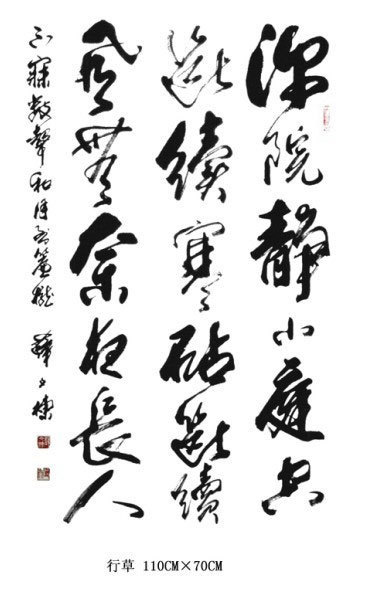 深院靜小庭空
斷續寒砧斷續
風無奈夜長人
不寐數聲和月到簾櫳
行草 110CM×70CM